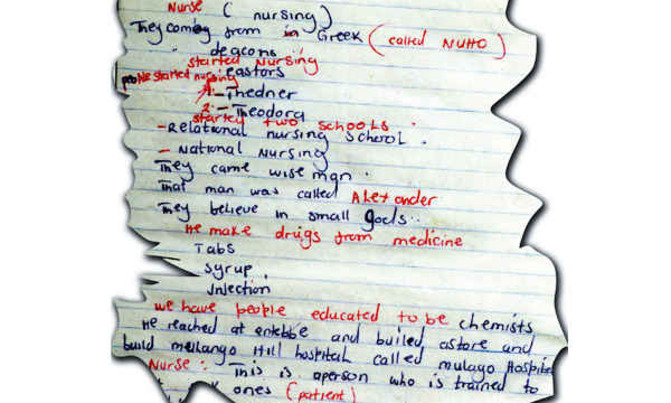 Nurse ( nursing )
They coming from in Greek ( called NUTTO )
deacons
started Nursing
people started nursing eastors
1 - Thedner
2 - Theodora
started two schools .
- Relational nursing school .
- National Nursing
They came wise man .
That man was called Alexander
They believe in small gods ..
He make drugs from medicine
Tabs
Syrup
Injection
we have people educated to be chemists
He reached at entebbe and builed astore and
build mellango Hill hospital called mulago Hospital
Nurse : This is aperson who is trained to
ones (patient)